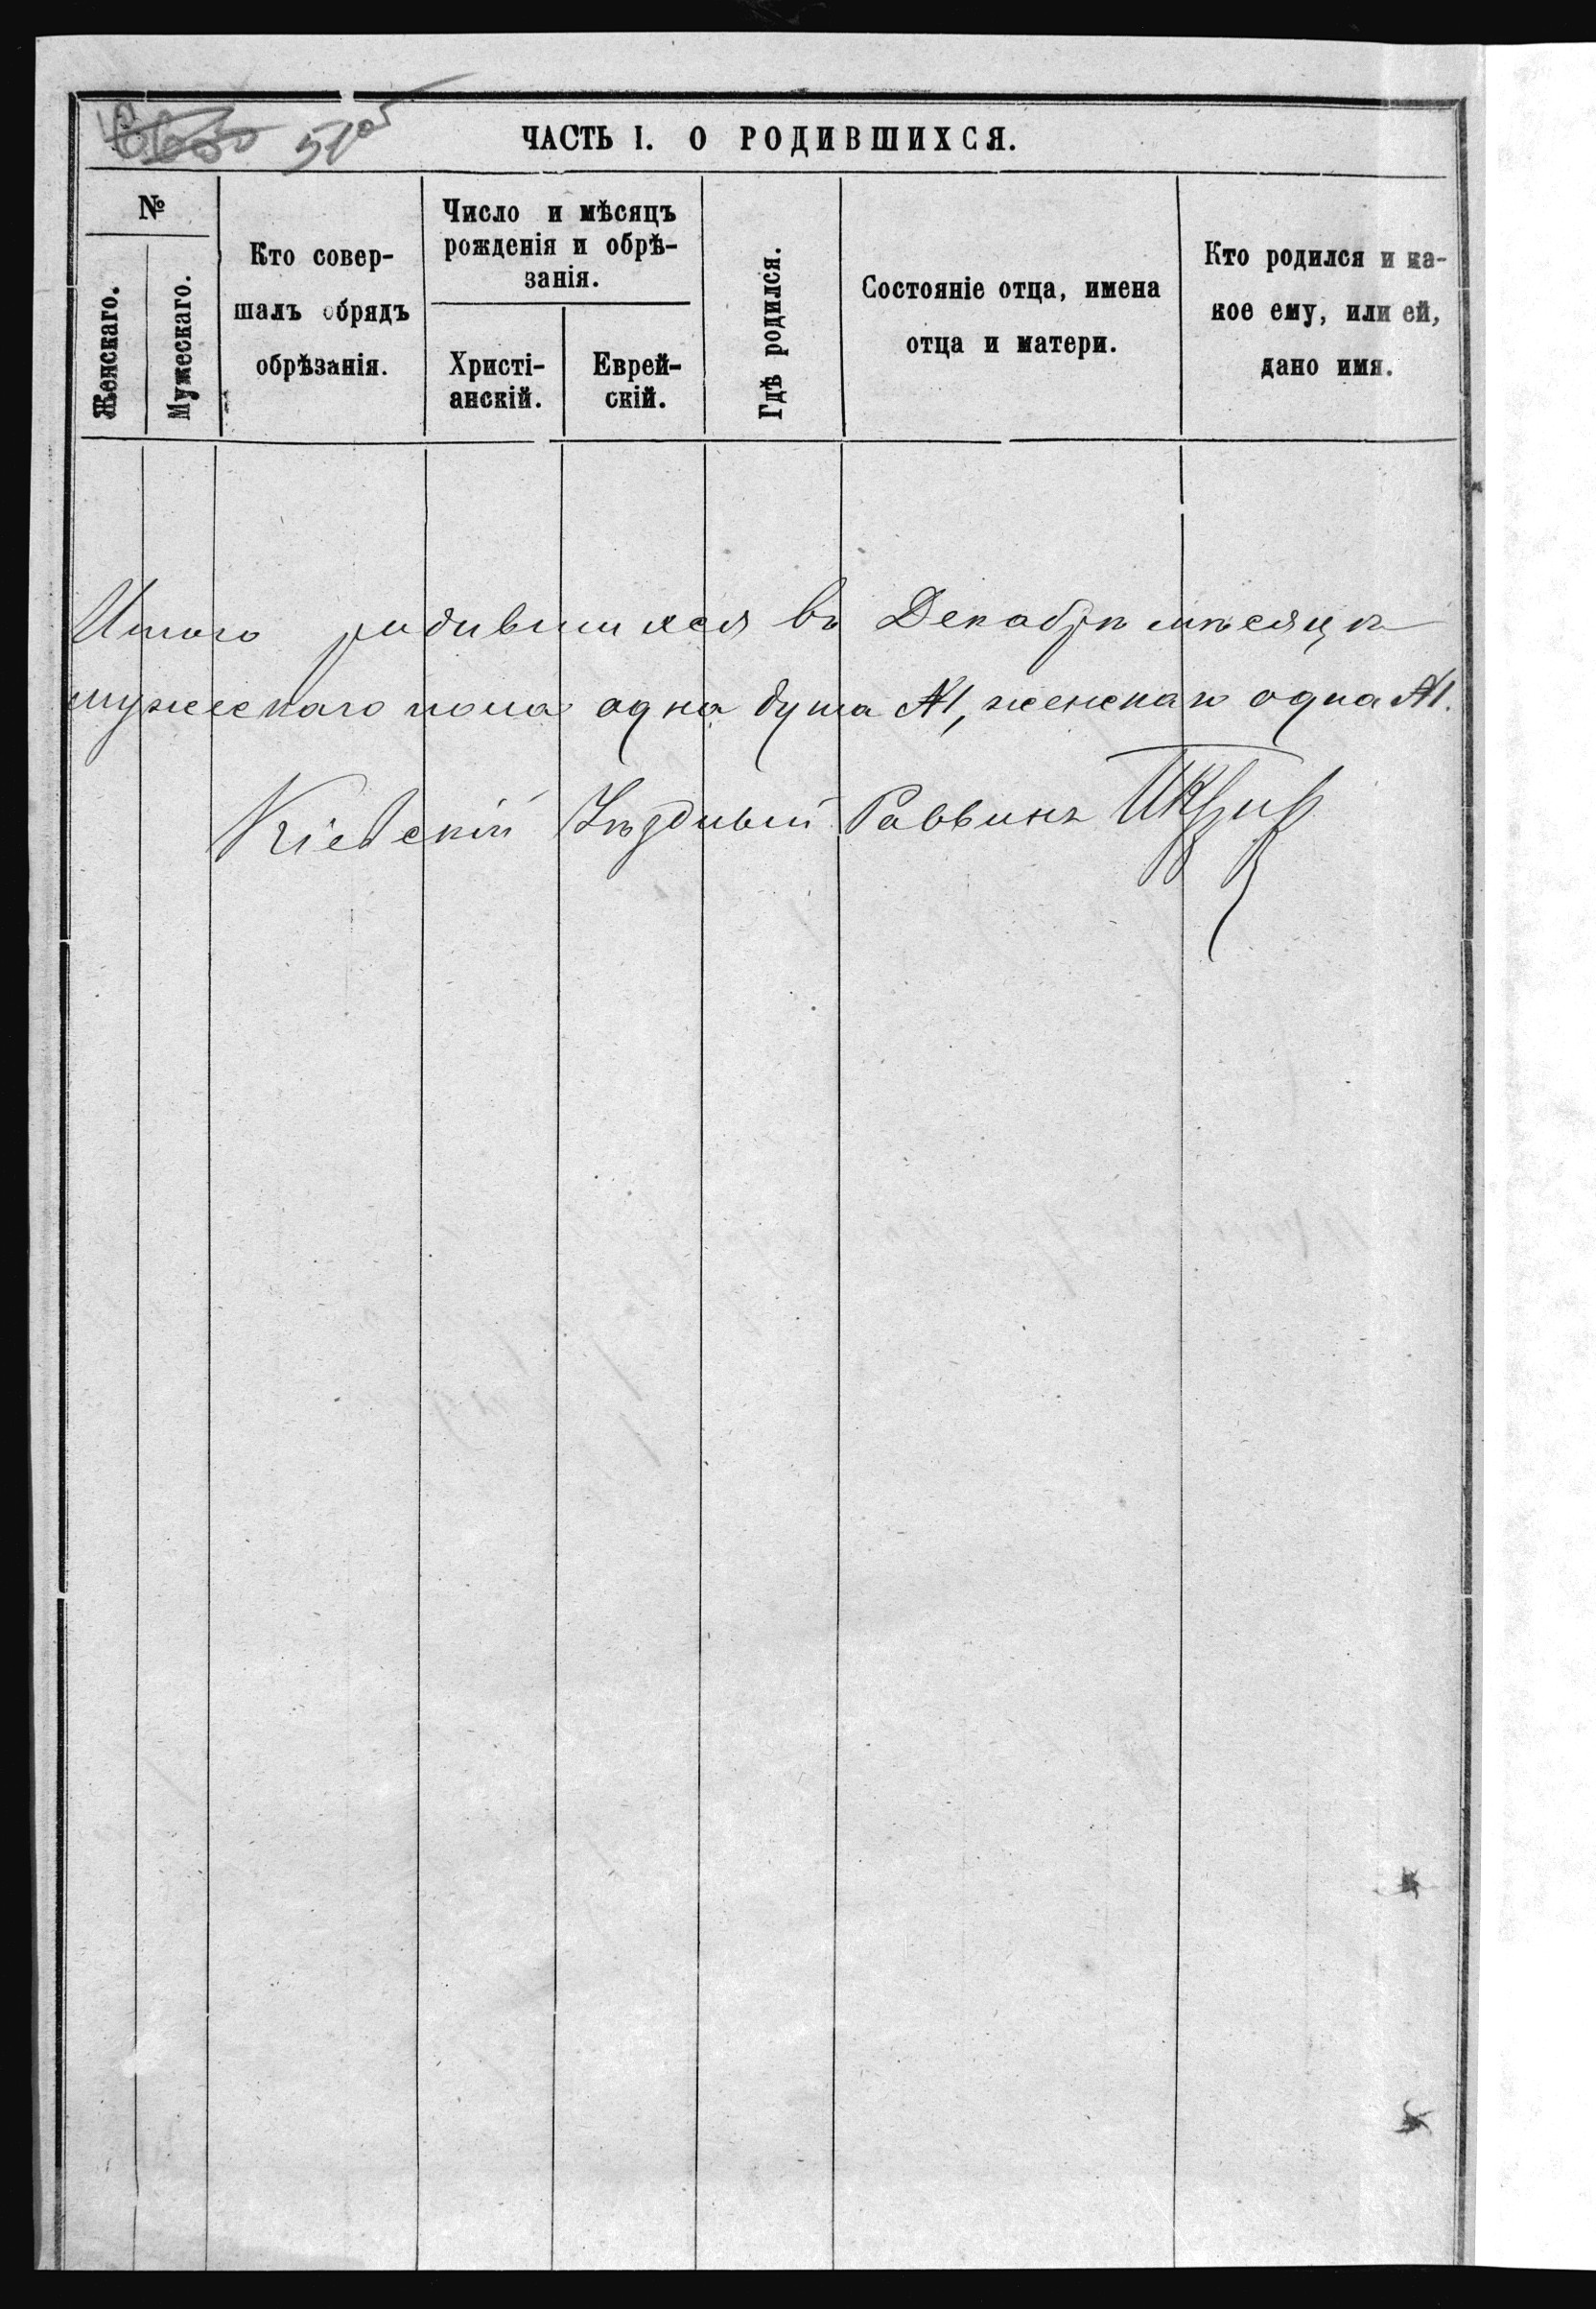 51об
ЧАСТЬ I. О РОДИВШИХСЯ.
№
Женскаго.
Мужескаго.
Кто совер-
шалъ обрядъ
обрѣзанія.
Число и мѣсяцъ
рожденія и обрѣ-
занія.
Христі-
анскій.
Еврей-
скій.
Гдѣ родился.
Состояніе отца, имена
отца и матери.
Кто родился и ка-
кое ему, или ей,
дано имя.
Итого родившихся въ Декабрѣ мѣсяцѣ
мужескаго пола одна душа №1, женскаго одна №1.
Кіевскій Уѣздный Раввинъ